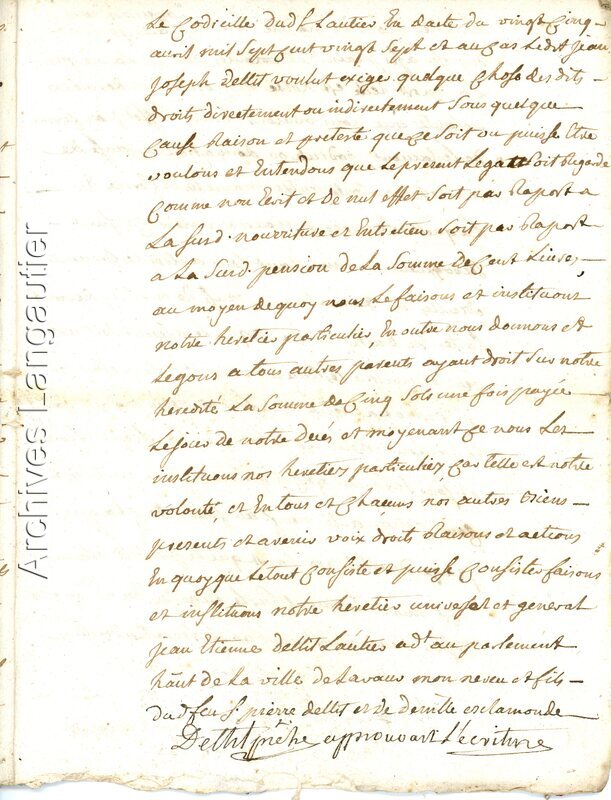 Le Codicille dud.t Lautier En datte du vingt Cinq
avril mil sept Cent vingt sept et au Cas Ledit jean
joseph dellit voulut exige quelque Chose des dits
droits directement ou indirectement sous quelque
Cause Raison et preteste que Ce soit ou puisse Etre
voulons et Entendons que Le present Legatt soit Regarde
Comme non Ecrit et de nul effet soit par Raport a
La susd. nourriture et Entretien soit par Raport
a La susd. pension de La Somme de Cent Livres,
au moyen de quoy nous Le faisons et instituons
notre heretier particulier, En outre nous donnons et
Legons a tous autres parents ayant droit sur notre
heredité La Somme de Cinq Sols une fois payée
Le jour de notre decés et moyenant Ce nous Les
instituons nos heretiez particuliez Car telle est notre
volonté, et En tous et Chacuns nos autres Biens
presents et avenir voix droits Raisons et actions
En quoy que Le tout Consiste et puisse Consiste faisons
et instituons notre heretier universel et general
jean Etienne dellit Lautier ad.t au parlement
hãnt de La ville de Lavaur mon neveu et fils
dud. feu S.r pierre dellit et de dem.lle esclamonde
Dellit prêtre approuvant l'écriture
Archives Langautier